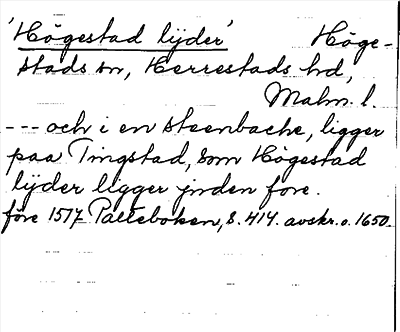 'Högestad lijder' Höge-
stads sn, Herrestads hd,
Malm. l.
--- och i en steenbache, ligger
paa Tingstad, som Högestad
lijder ligger jnden fore.
före 1517 Palteboken, s. 414. avskr. o. 1650.